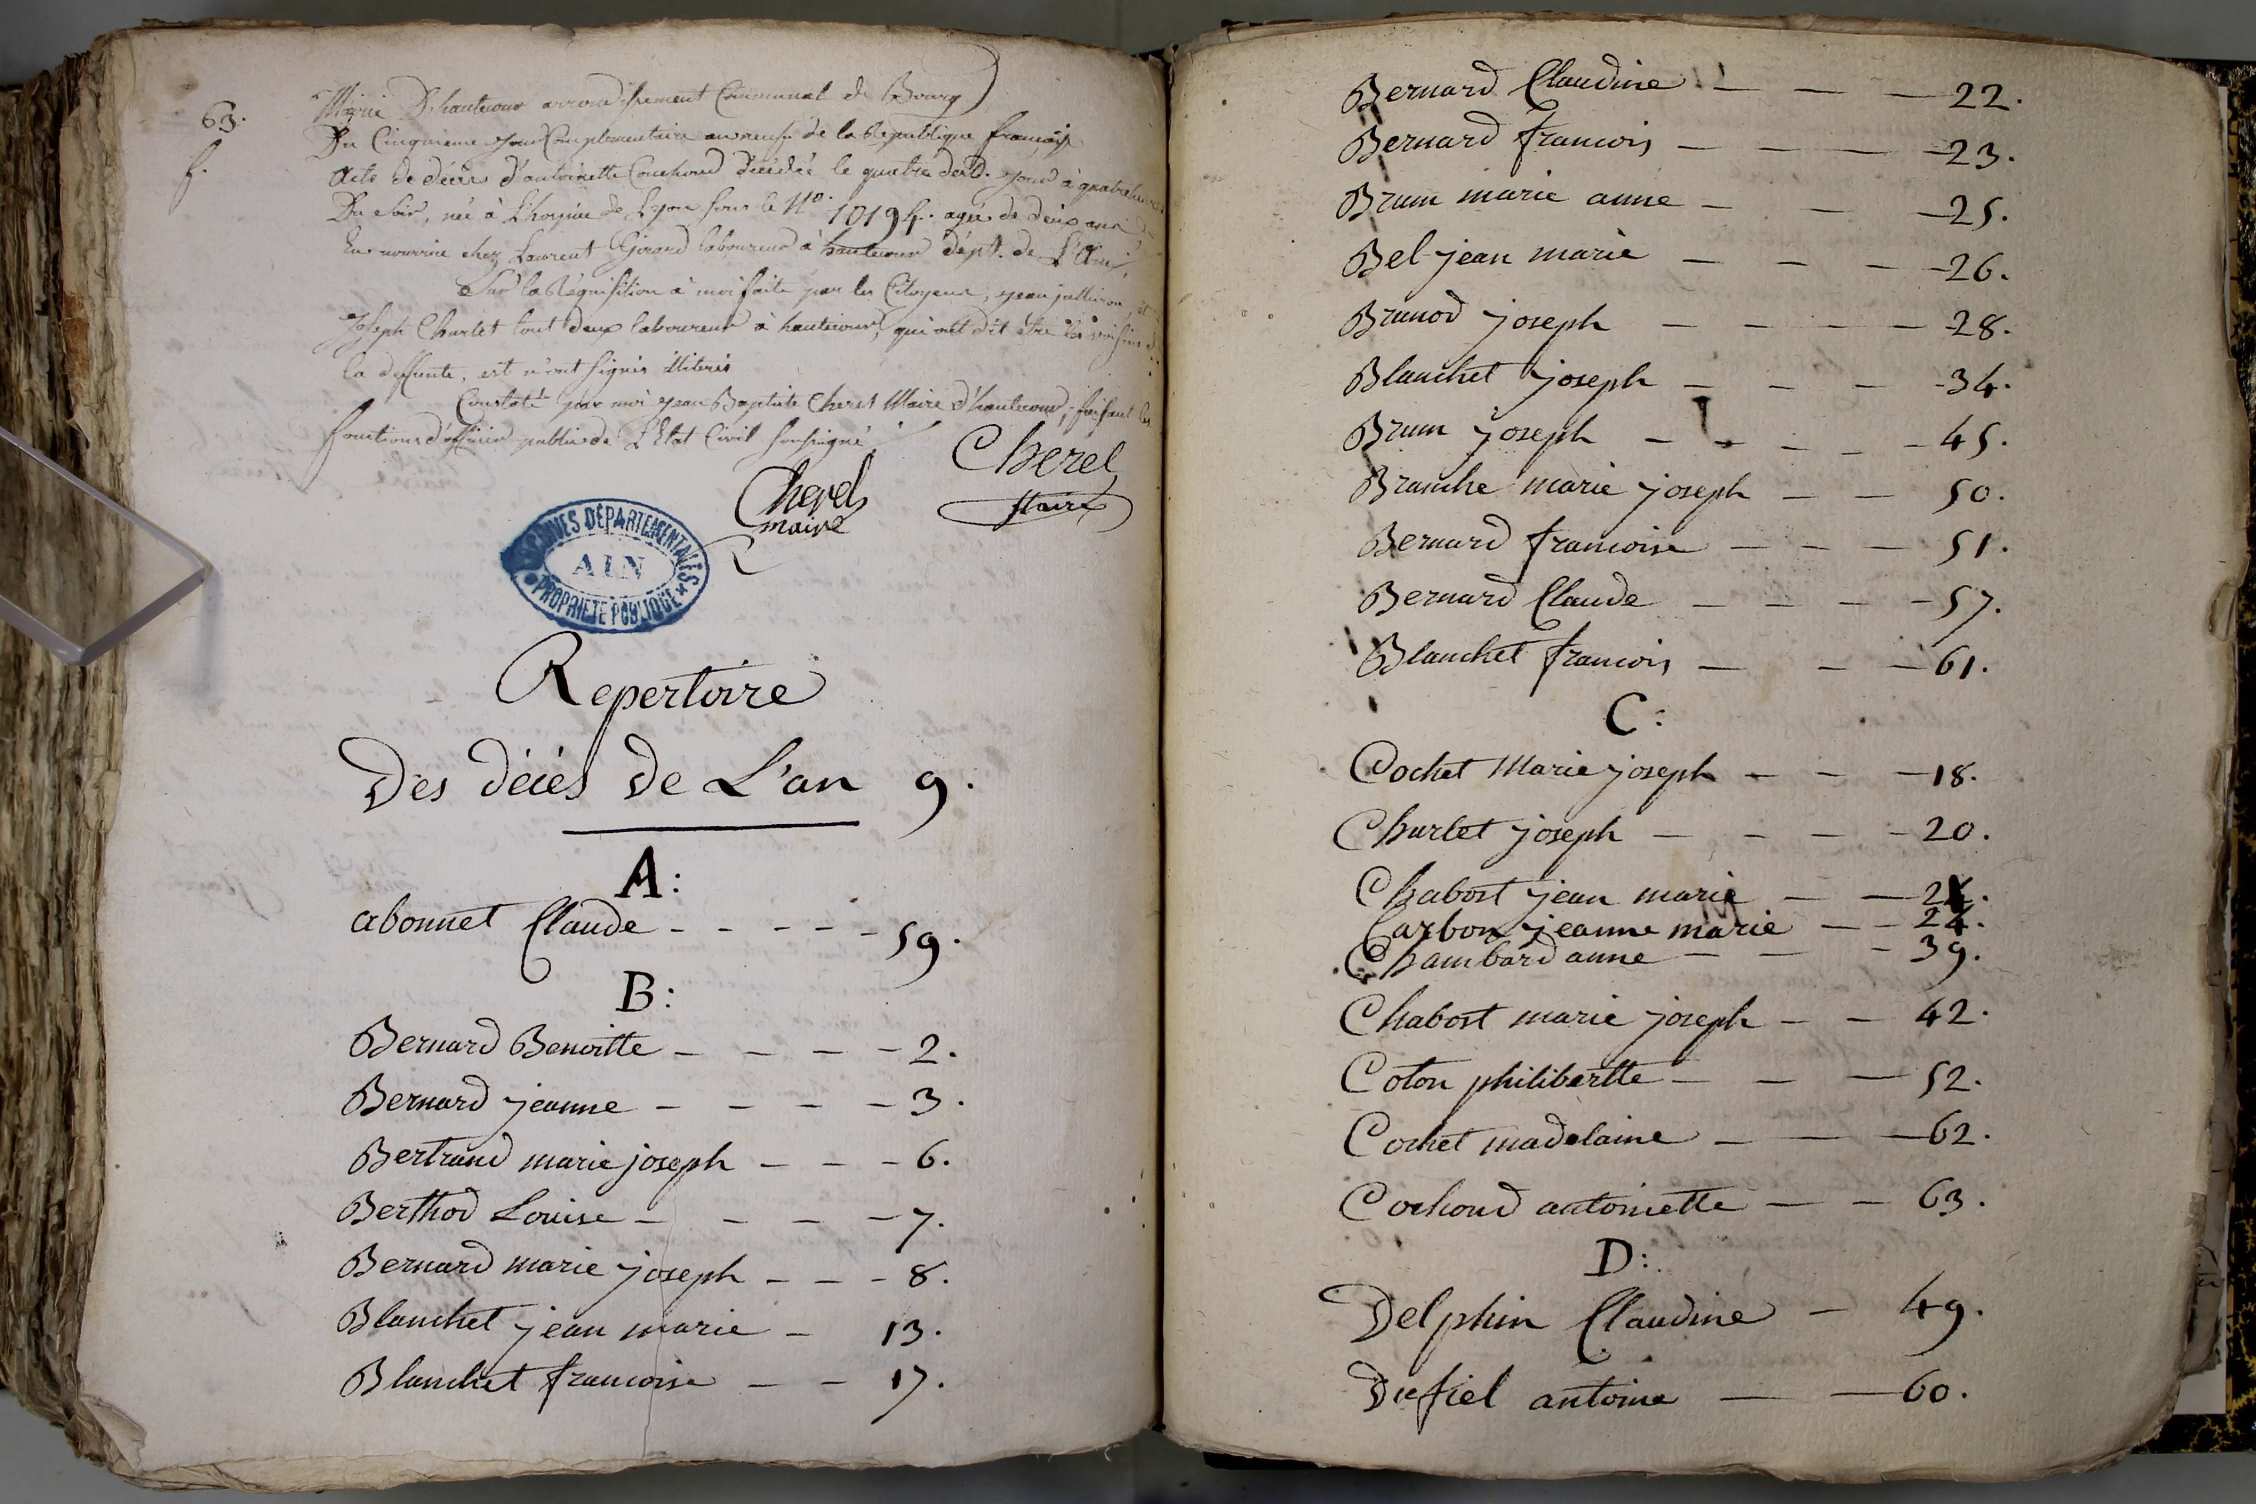 63.
f.
Mairie D'hautecour arrondissement Communal de Bourg
Du Cinquieme jour Complementaire an neuf de la Republique française
Acte de décès d'antoinette Couchoud décédée le quatre dud. jour à quatre heures
Du soir, née à L'hospice de Lyon sous le No. 10194. agée de deux ans
En nourrice chez Laurent Girard laboureur à hautecour dépt. de L'Ain,
Sur la Réquisition à moi faite par les Citoyens, jean
Joseph Churlet tout deux laboureurs à hautecour, qui ont dit être les voisins
la deffunte, et n'ont signés illiterés
Constaté par moi jean Baptiste Cherel Maire d'hautecour, faisant les
fonctions d'officier public de L'Etat Civil soussigné
Cherel
maire
Cherel
Maire
ARCHIVES DÉPARTEMENTALES
AIN
PROPRIÉTÉ PUBLIQUE
Repertoire
Des décés de L'an 9.
A:
abonnet Claude - - - - - 59.
B:
Bernard Benoitte - - - - 2.
Bernard jeanne - - - - 3.
Bertrand marie joseph - - - 6.
Berthod Louise - - - - 7.
Bernard marie joseph - - - 8.
Blanchet jean marie - 13.
Blanchet francoise - - 17.
Bernard Claudine - - - 22.
Bernard francois - - - - 23.
Brum marie anne - - - 25.
Bel jean marie - - - - 26.
Brunod joseph - - - - - 28.
Blanchet joseph - - - - 34.
Brum joseph - - - - - 45.
Branche marie joseph - - 50.
Bernard francoise - - - 51.
Bernard Claude - - - - 57.
Blanchet francois - - - 61.
C:
Cochet Marie joseph - - - 18.
Churlet joseph - - - - 20.
Chabost jean marie - - 21.
Carbon jeanne marie - - 24.
Chambard anne - - - 39.
Chabost marie joseph - - 42.
Coton philibertte - - - 52.
Cochet madelaine - - - 62.
Cochoud antoinette - - 63.
D:
Delphin Claudine - 49.
Dufiel antoine - - 60.